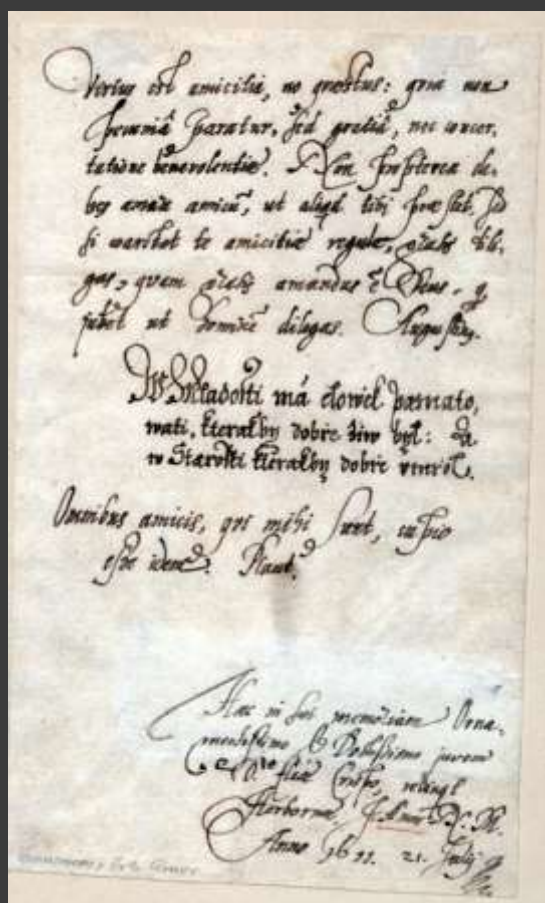 Virtus est amicitia, nō quæstus: quia non
pecuniâ paratur, sed gratiâ, nec concer-
tatione benevolentiæ. Non propterea de-
bes amare amicū, ut aliqd tibi præstet. Sed
si te amicitiæ regulæ,
gas, quam amandus ē Deus, q
jubet ut dilegas. Augustin9.
W Mladosti má člowěk pamato,
wati, kterakby dobře žiw byl: a
w Starosti kterakby dobře vmřel.
Omnibus amicis, qui mihi sunt, cupio
esse idem. Plaut.
Hæc in sui memoriam Orna-
& Doctissimo juveni
relinqt
Herbornæ, J. Amos N. M.
Anno 1611. 21. Julij